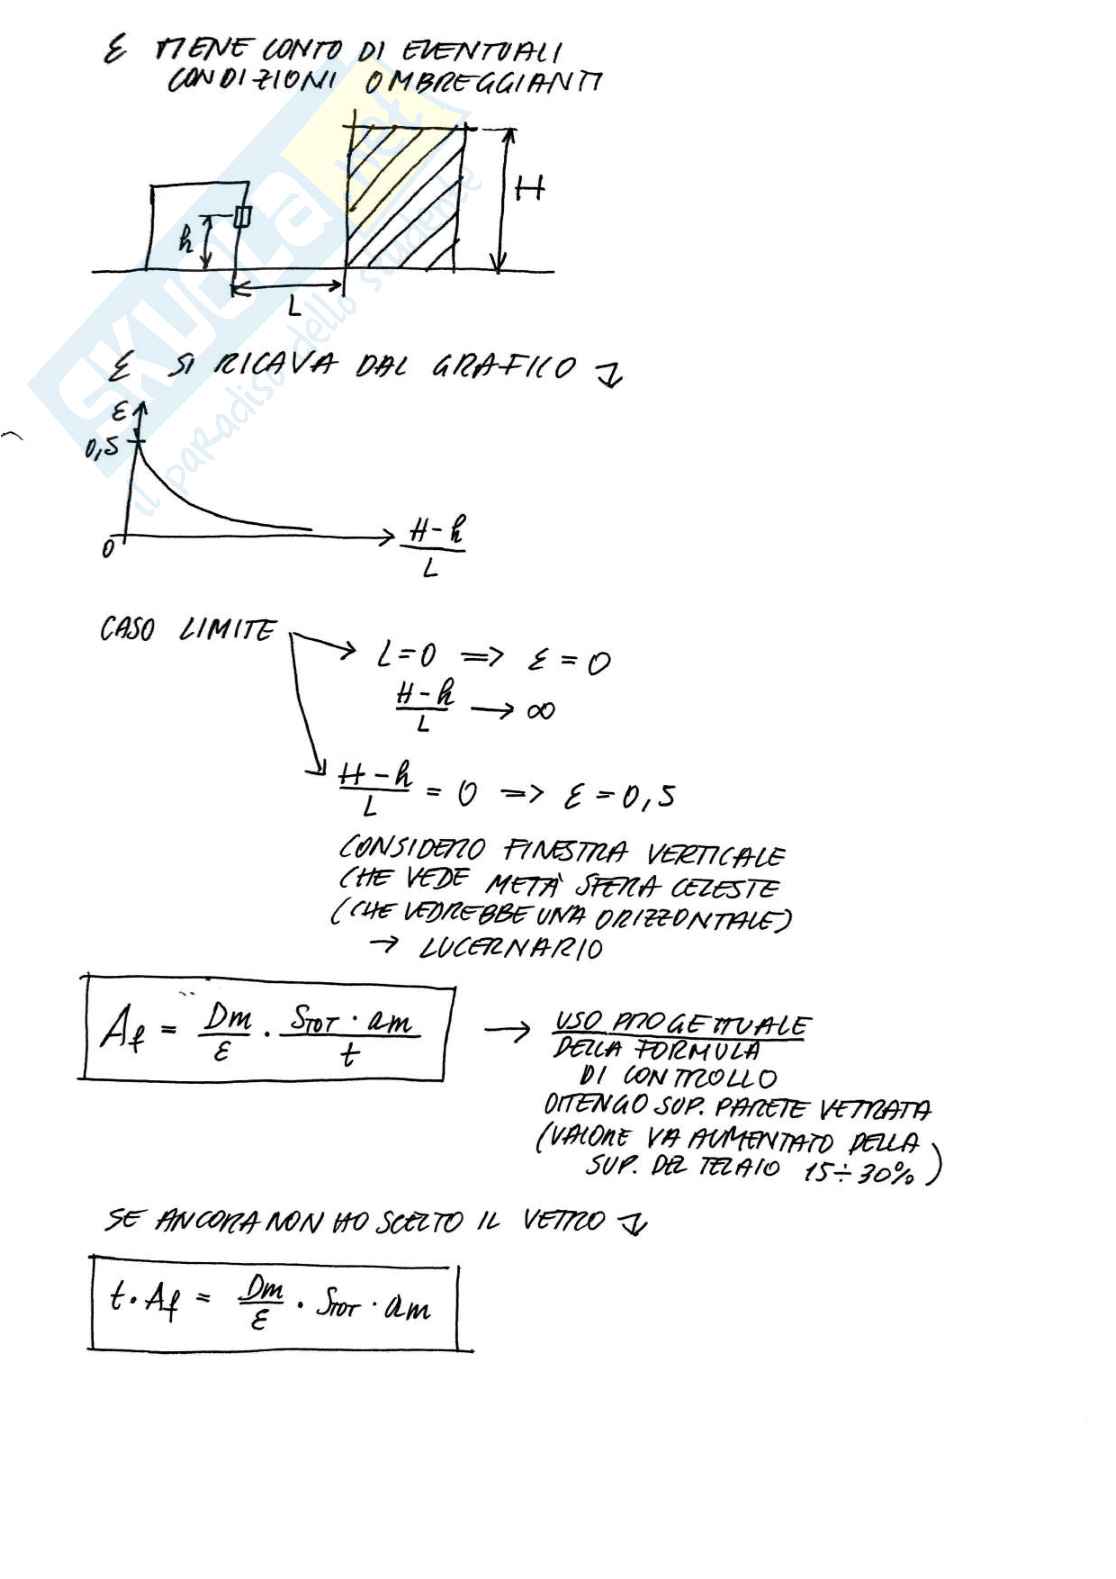 ε TIENE CONTO DI EVENTUALI
CONDIZIONI OMBREGGIANTI
H
h
L
ε SI RICAVA DAL GRAFICO
ε
0,5
0
H-h
L
CASO LIMITE
L=0 => ε=0
H-h
L
→ ∞
H-h
L
= 0 => ε=0,5
CONSIDERO FINESTRA VERTICALE
CHE VEDE METÀ SFERA CELESTE
(CHE VEDREBBE UNA ORIZZONTALE)
→ LUCERNARIO
Af = Dm/ε · STOT · am/t
→ USO PROGETTUALE
DELLA FORMULA
DI CONTROLLO
OTTENGO SUP. PARETE VETRATA
(VALORE VA AUMENTATO DELLA
SUP. DEL TELAIO 15÷30%)
SE ANCORA NON HO SCELTO IL VETRO
t·Af = Dm/ε · STOT · am
SKUOLA.net
il paradiso dello studente